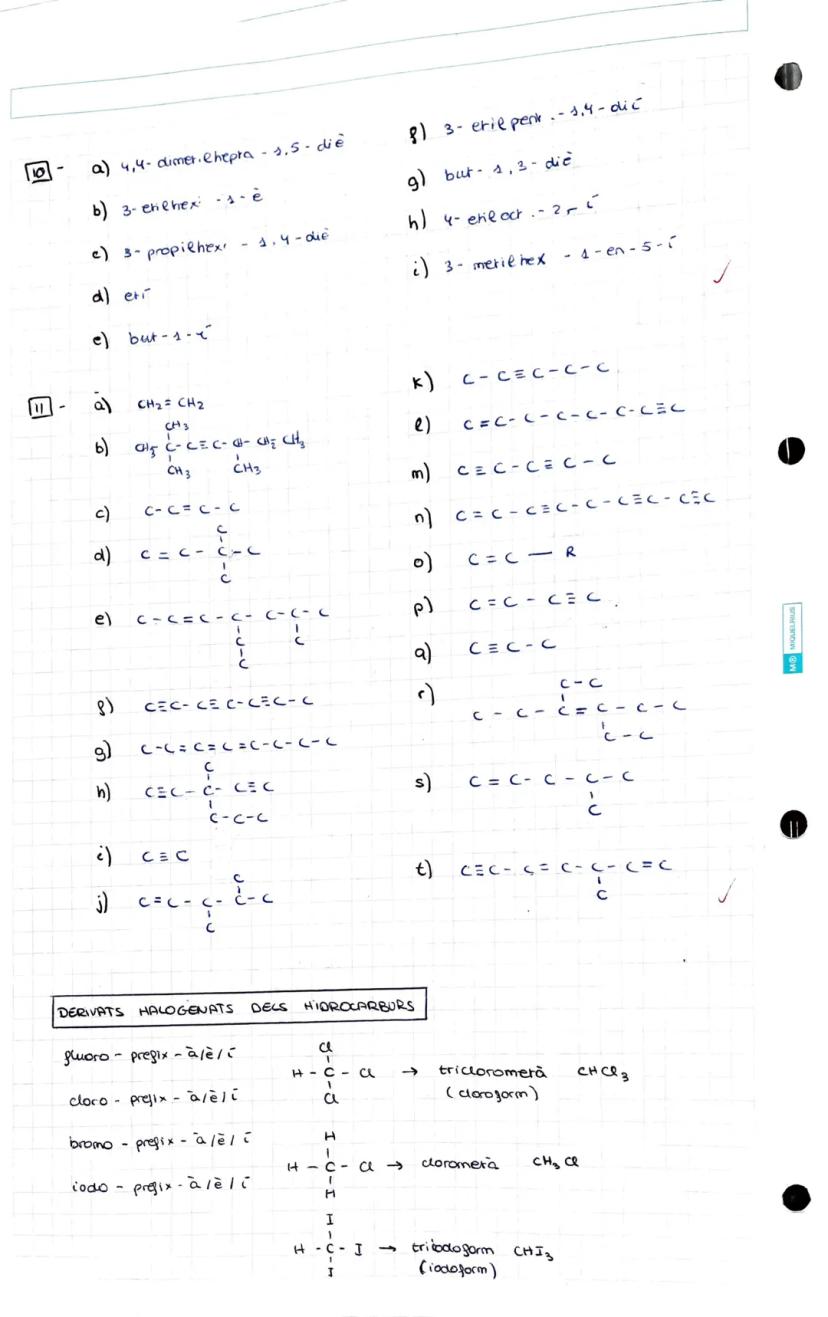 10 - a) 4,4-dimetilhepta-1,5-diè
b) 3-etilhex-1-è
c) 3-propilhexa-1,4-diè
d) etí
e) but-1-í
f) 3-etilpent-1,4-dií
g) but-1,3-diè
h) 4-etiloct-2-í
i) 3-metilhex-1-en-5-í
11 - a) CH2=CH2
CH3
b) CH3 C-C≡C-CH-CH2 CH3
CH3 CH3
c) C-C=C-C
C
d) C=C-C-C
C
e) C-C=C-C-C-C-C
C C
C
f) C≡C-C≡C-C≡C-C
g) C-C=C=C=C-C-C-C
C
h) C≡C-C-C≡C
C-C-C
i) C≡C
C
j) C=C-C-C-C
C
k) C-C≡C-C-C
l) C=C-C-C-C-C-C≡C
m) C≡C-C≡C-C
n) C=C-C≡C-C-C≡C-C≡C
o) C=C-R
p) C=C-C≡C
q) C≡C-C
r) C-C
C-C-C=C-C-C
C-C
s) C=C-C-C-C
C
t) C≡C-C=C-C-C=C
C
MIQUELRIUS
DERIVATS HALOGENATS DELS HIDROCARBURS
fluoro - prefix - à/è/í
cloro - prefix - à/è/í
bromo - prefix - à/è/í
iodo - prefix - à/è/í
Cl
H-C-Cl → triclorometà CHCl3
Cl (cloroform)
H
H-C-Cl → clorometà CH3Cl
H
I
H-C-I → triiodoform CHI3
I (iodoform)